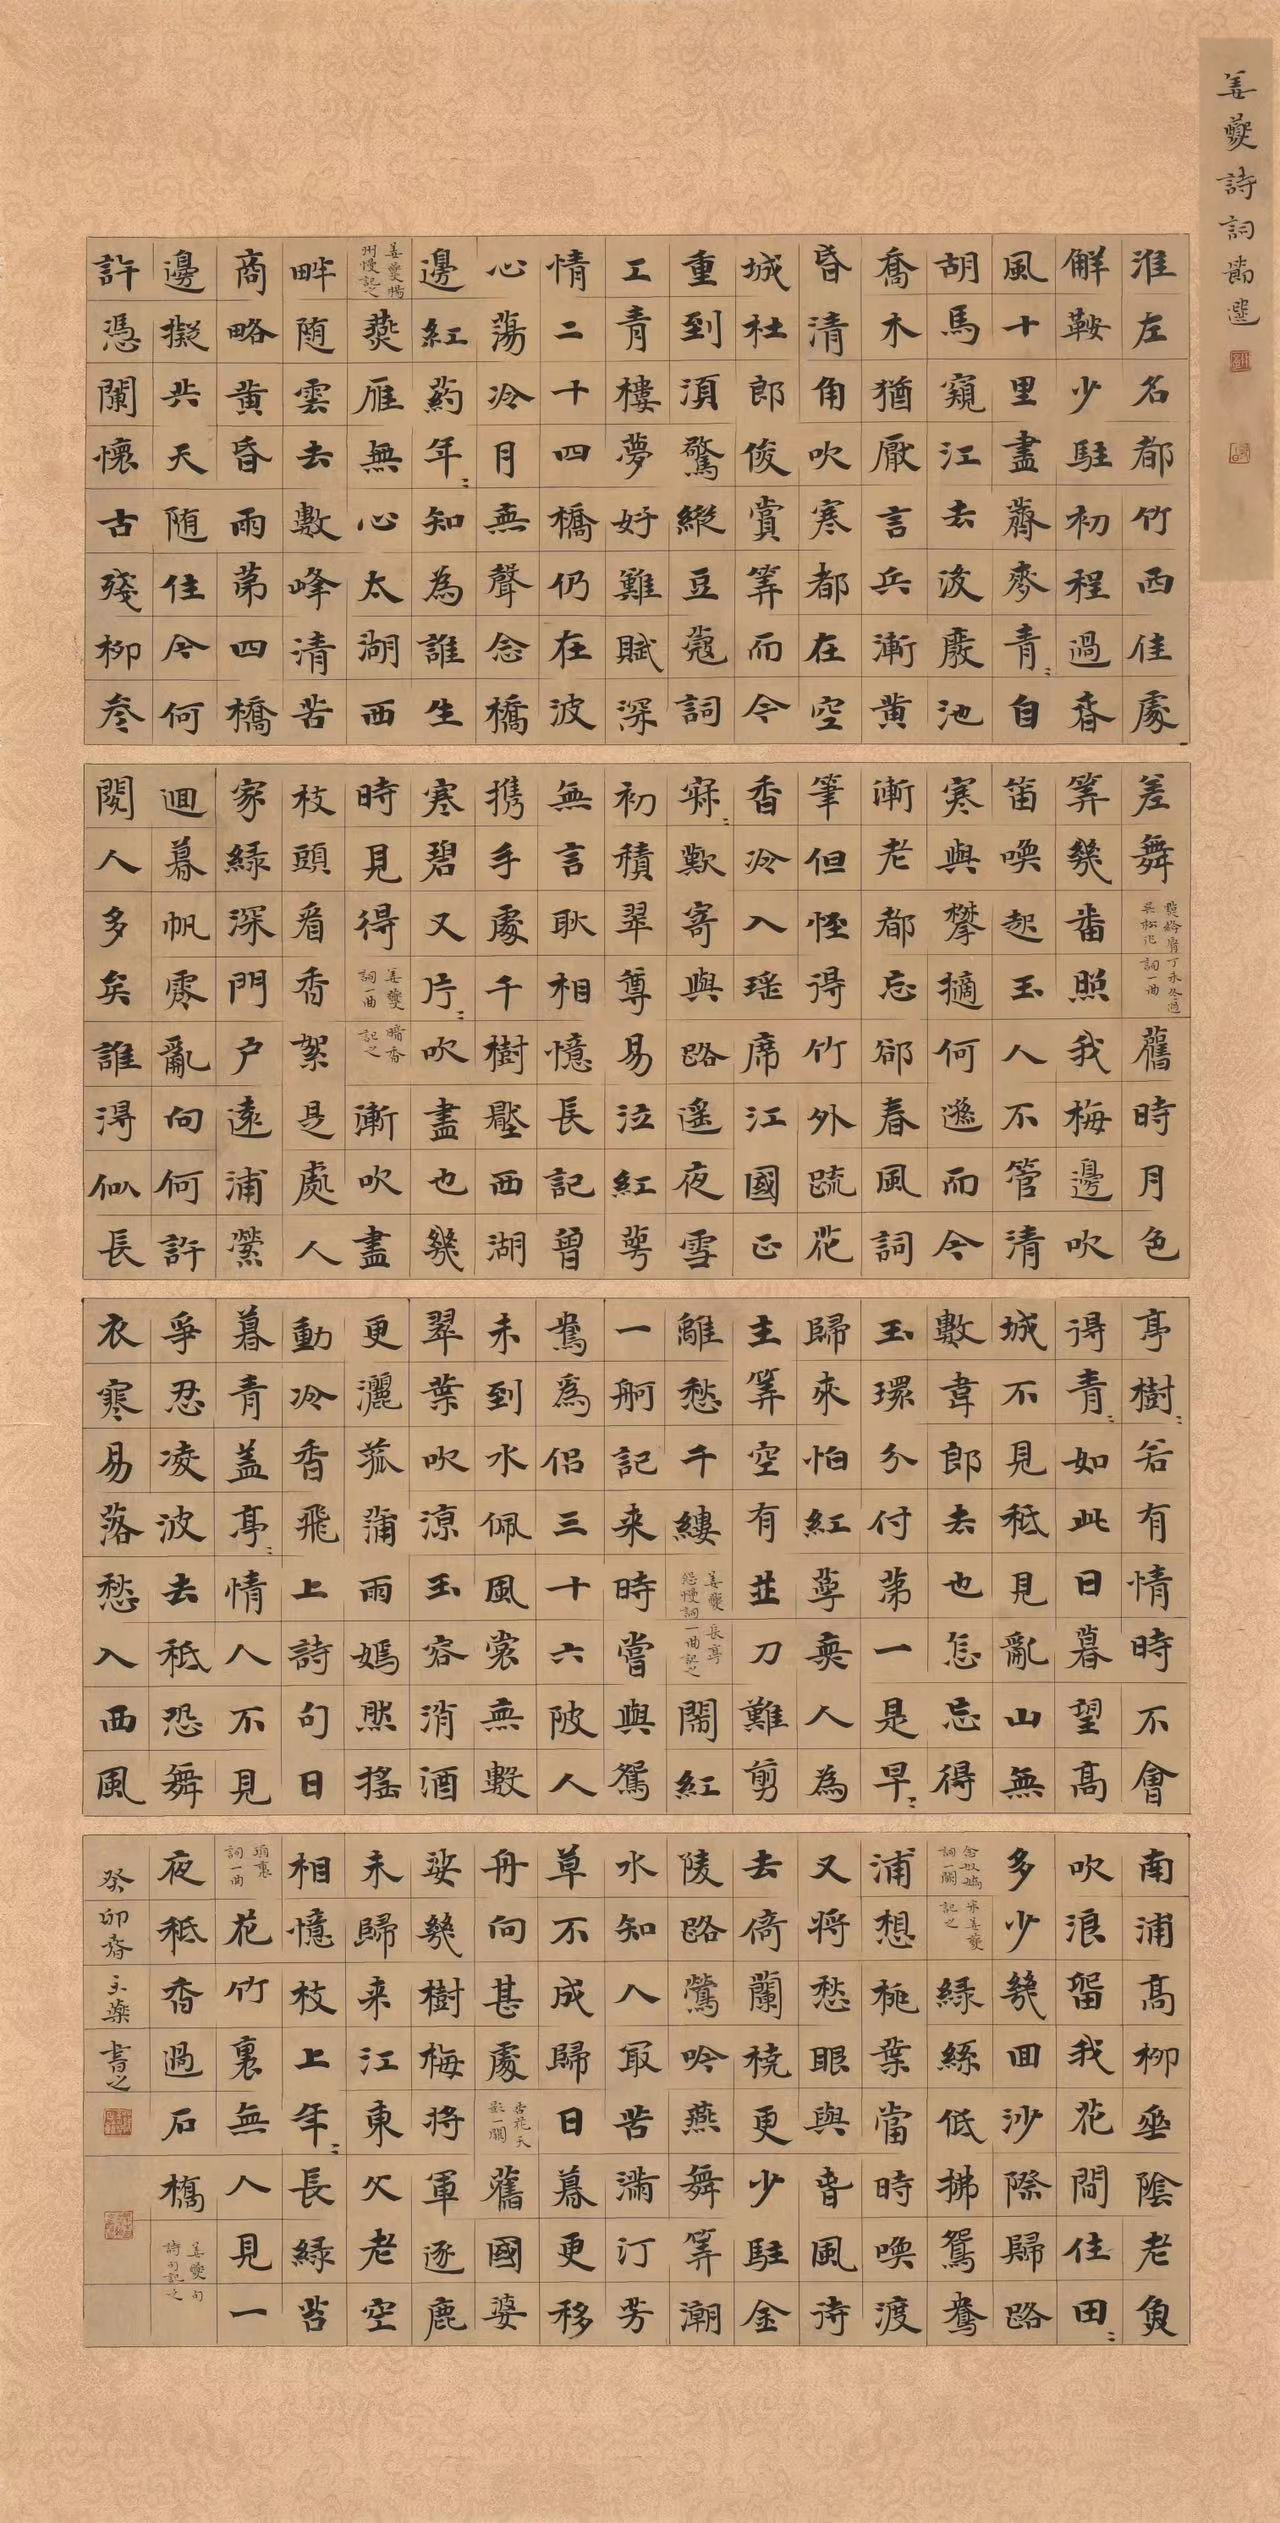 姜夔詩詞節選
淮左名都竹西佳處
解鞍少駐初程過春
風十里盡薺麥青〻自
胡馬窺江去後廢池
喬木猶厭言兵漸黃
昏清角吹寒都在空
城杜郎俊賞算而今
重到須驚縱豆蔻詞
工青樓夢好難賦深
情二十四橋仍在波
心蕩冷月無聲念橋
邊紅葯年〻知為誰生
姜夔揚州慢記之燕雁無心太湖西
畔随雲去數峰清苦
商略黃昏雨第四橋
邊擬共天随住今何
許憑闌懷古殘柳參
差舞點絳脣丁未冬過吳松作詞一曲舊時月色
算幾番照我梅邊吹
笛喚起玉人不管清
寒與攀摘何遜而今
漸老都忘卻春風詞
筆但怪得竹外疏花
香冷入瑤席江國正
寂〻歎寄與路遙夜雪
初積翠尊易泣紅萼
無言耿相憶長記曾
携手處千樹壓西湖
寒碧又片〻吹盡也幾
時見得姜夔詞一曲暗香記之漸吹盡
枝頭看香絮是處人
家綠深門戶遠浦縈
迴暮帆零亂向何許
閱人多矣誰得似長
亭樹〻若有情時不會
得青〻如此日暮望高
城不見秪見亂山無
數韋郎去也怎忘得
玉環分付第一是早〻
歸來怕紅萼無人為
主算空有並刀難剪
離愁千縷姜夔長亭怨慢詞一曲記之鬧紅
一舸記来時嘗與鴛
鴦為侶三十六陂人
未到水佩風裳無數
翠葉吹涼玉容消酒
更灑菰蒲雨嫣然搖
動冷香飛上詩句日
暮青蓋亭〻情人不見
爭忍凌波去秪恐舞
衣寒易落愁入西風
南浦高柳垂陰老魚
吹浪留我花間住田〻
多少幾回沙際歸路
念奴嬌詞一闋宋姜夔記之綠絲低拂鴛鴦
浦想桃葉當時喚渡
又將愁眼與春風待
去倚蘭橈更少駐金
陵路鶯吟燕舞算潮
水知人最苦滿汀芳
草不成歸日暮更移
舟向甚處杏花天影一闋舊國婆
娑幾樹梅將軍逐鹿
未歸来江東父老空
相憶枝上年〻長綠苔
項裏詞一曲花竹裏無人見一
夜秪香過石橋姜夔句詩句記之
癸卯春藥書之